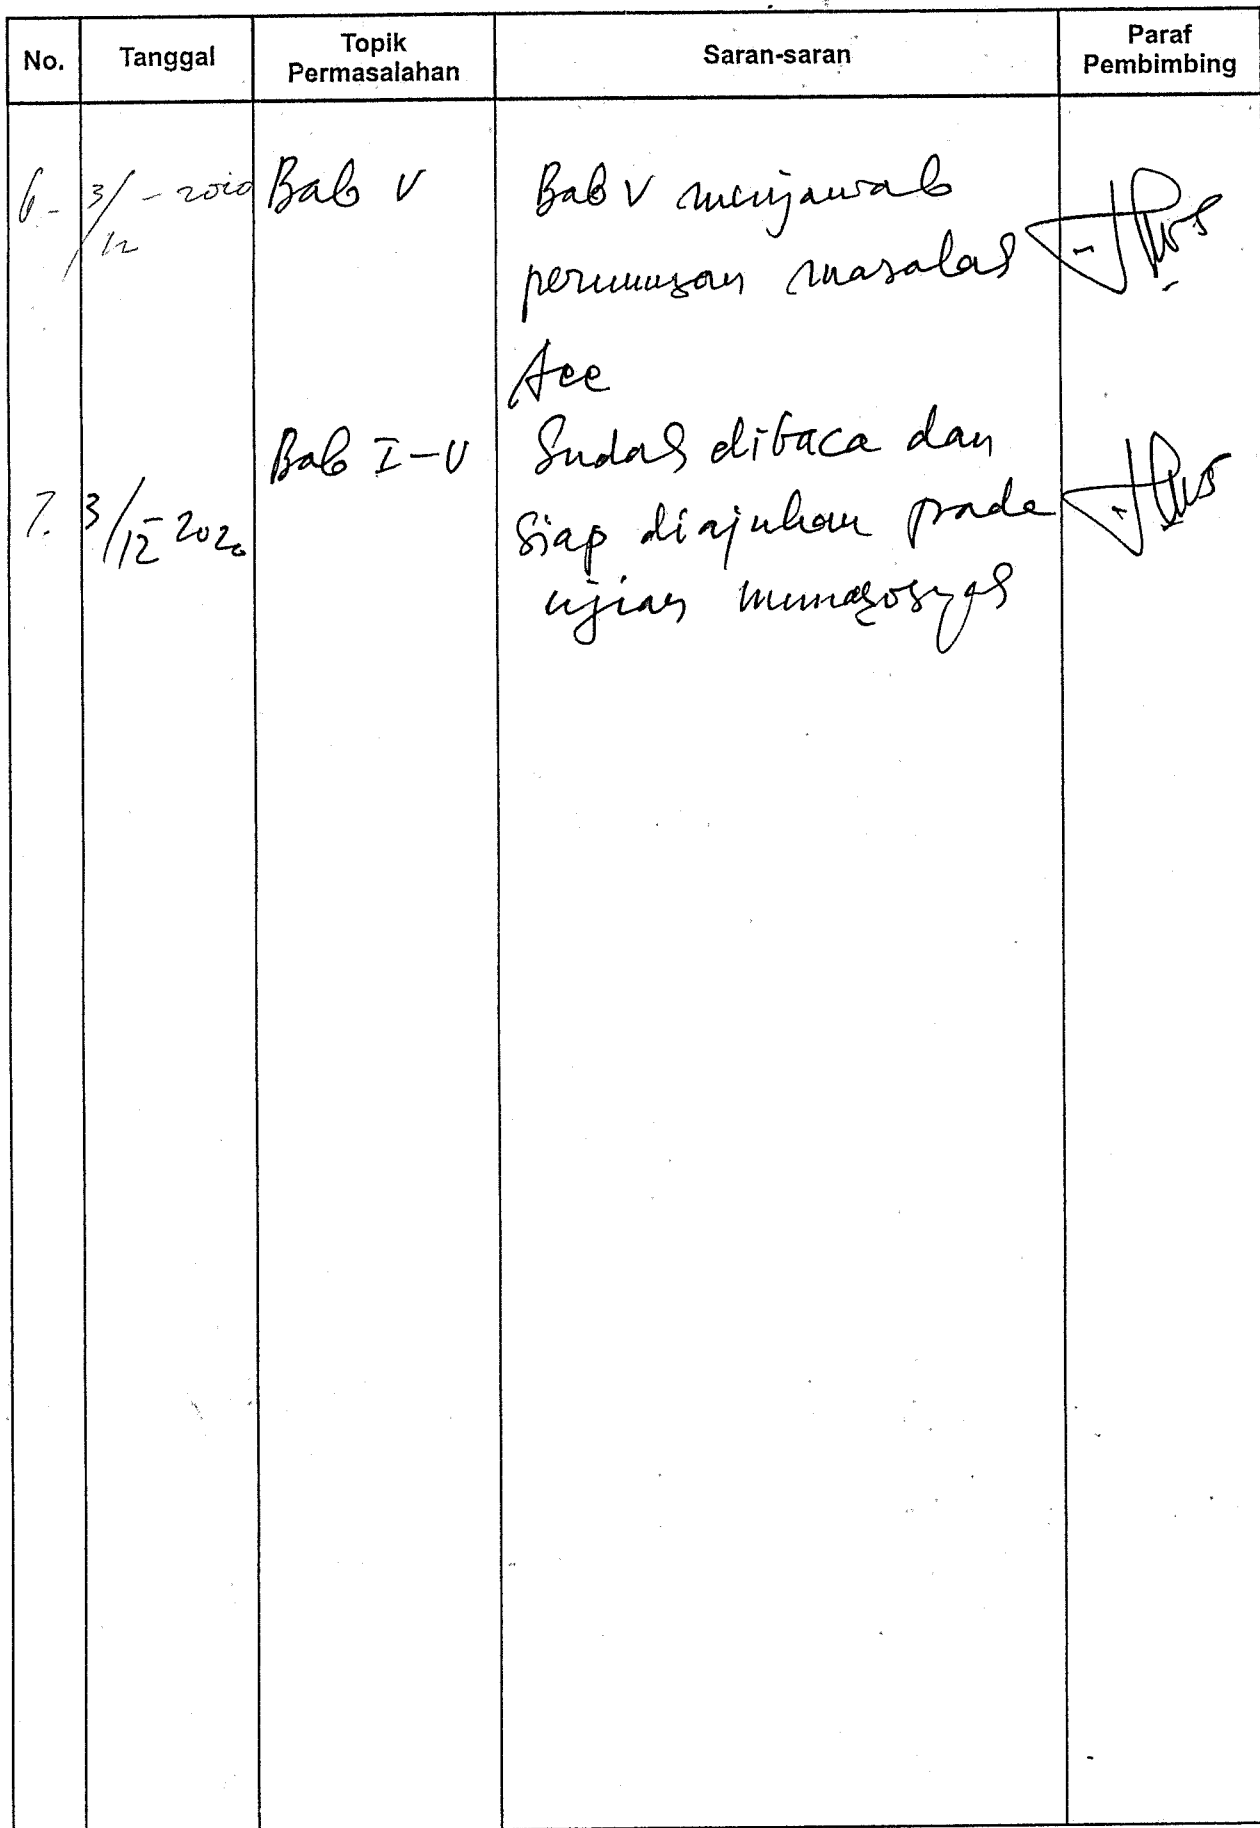 No. Tanggal Topik Permasalahan Saran-saran Paraf Pembimbing
6- 3/12 - 2020 Bab V Bab V menjawab
perumusan masalah
Acc
Bab I-V Sudah dibaca dan
7. 3/12-2020 Siap diajukan pada
ujian munaqosyah